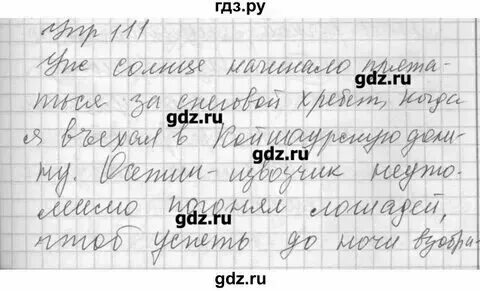 гдз.ру
Упр 111
Уже солнце начинало прята-
ться за снеговой хребет, когда
я въехал в Койшаурскую доли-
ну. Осетин-извозчик неуто-
мимо погонял лошадей,
чтоб успеть до ночи взобра-
gdz.ru
gdz.ru
gdz.ru
gdz.ru
gdz.ru